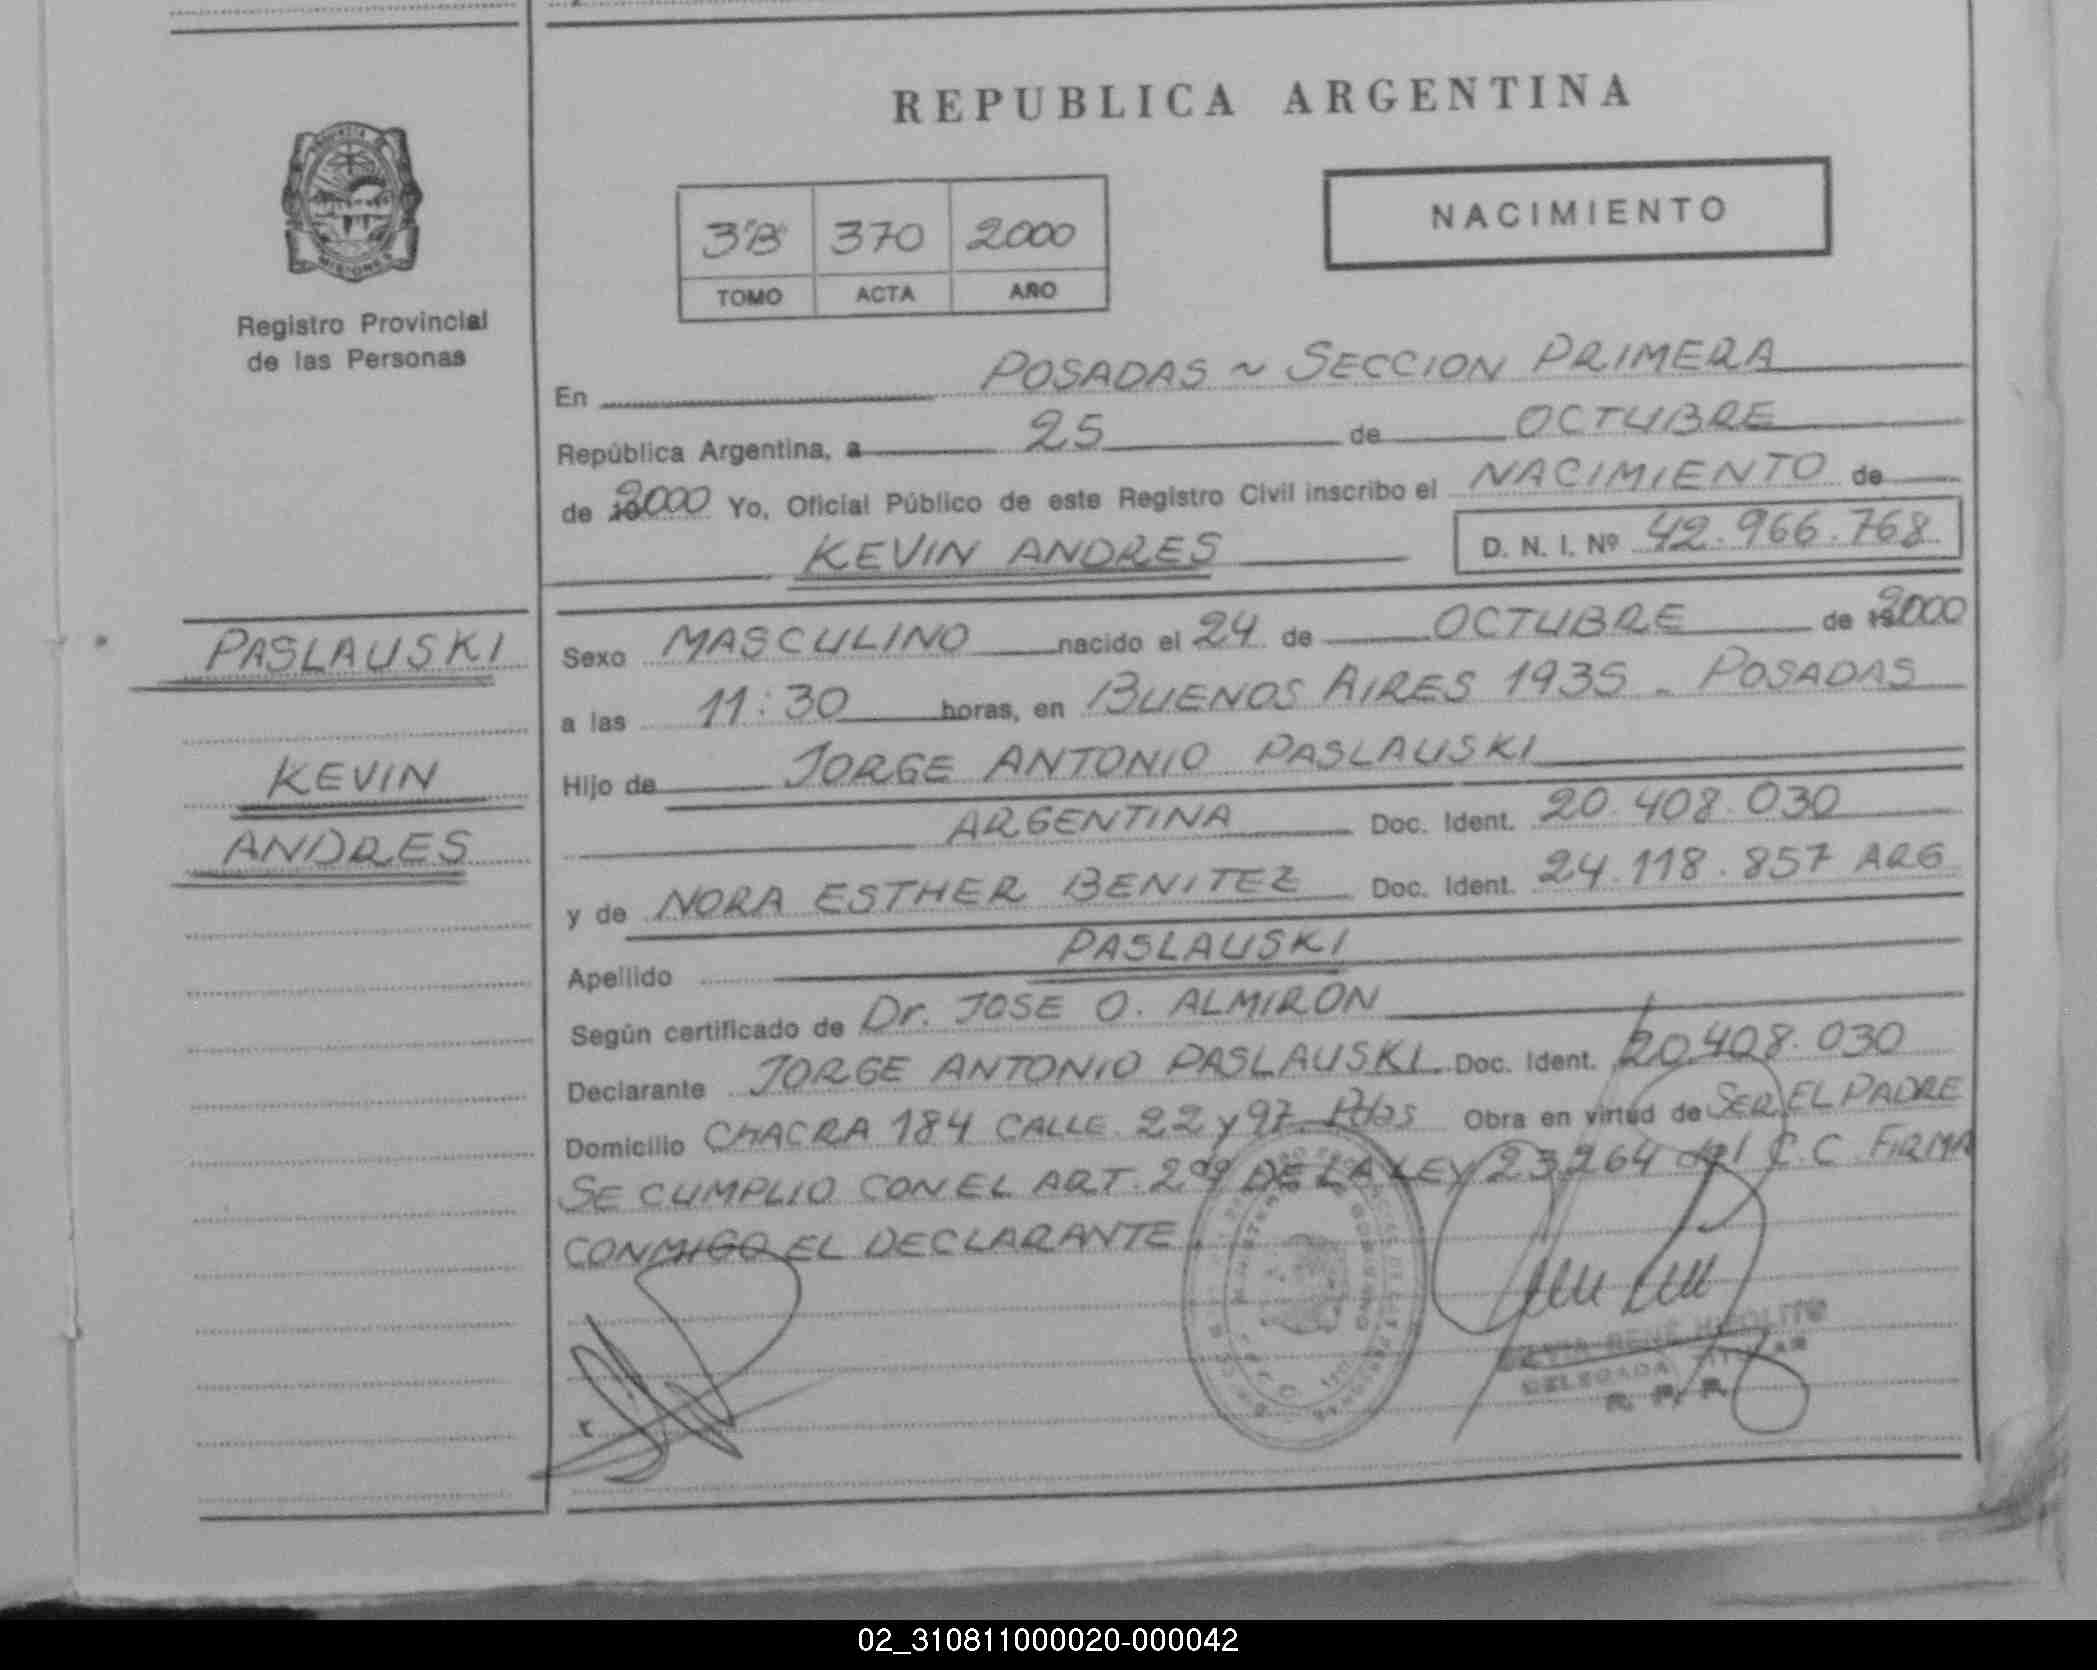 REPUBLICA ARGENTINA
PROVINCIA
MISIONES
Registro Provincial
de las Personas
3"B" 370 2000
TOMO ACTA AÑO
NACIMIENTO
En POSADAS ~ SECCION PRIMERA
República Argentina, a 25 de OCTUBRE
de 2000 Yo, Oficial Público de este Registro Civil inscribo el NACIMIENTO de
KEVIN ANDRES
D. N. I. Nº 42.966.768
PASLAUSKI
KEVIN
ANDRES
Sexo MASCULINO nacido el 24 de OCTUBRE de 2000
a las 11:30 horas, en BUENOS AIRES 1935 - POSADAS
Hijo de JORGE ANTONIO PASLAUSKI
ARGENTINA Doc. Ident. 20.408.030
y de NORA ESTHER BENITEZ Doc. Ident. 24.118.857 ARG
Apellido PASLAUSKI
Según certificado de Dr. JOSE O. ALMIRON
Declarante JORGE ANTONIO PASLAUSKI Doc. Ident. 20.408.030
Domicilio CHACRA 184 CALLE 22 y 97 Pdas Obra en virtud de SER EL PADRE
SE CUMPLIO CON EL ART. 2º DE LA LEY 23264 del C.C. FIRMA
CONMIGO EL DECLARANTE.
SILVIA RENE HIPOLITO
DELEGADA TITULAR
R. P. P.
02_310811000020-000042